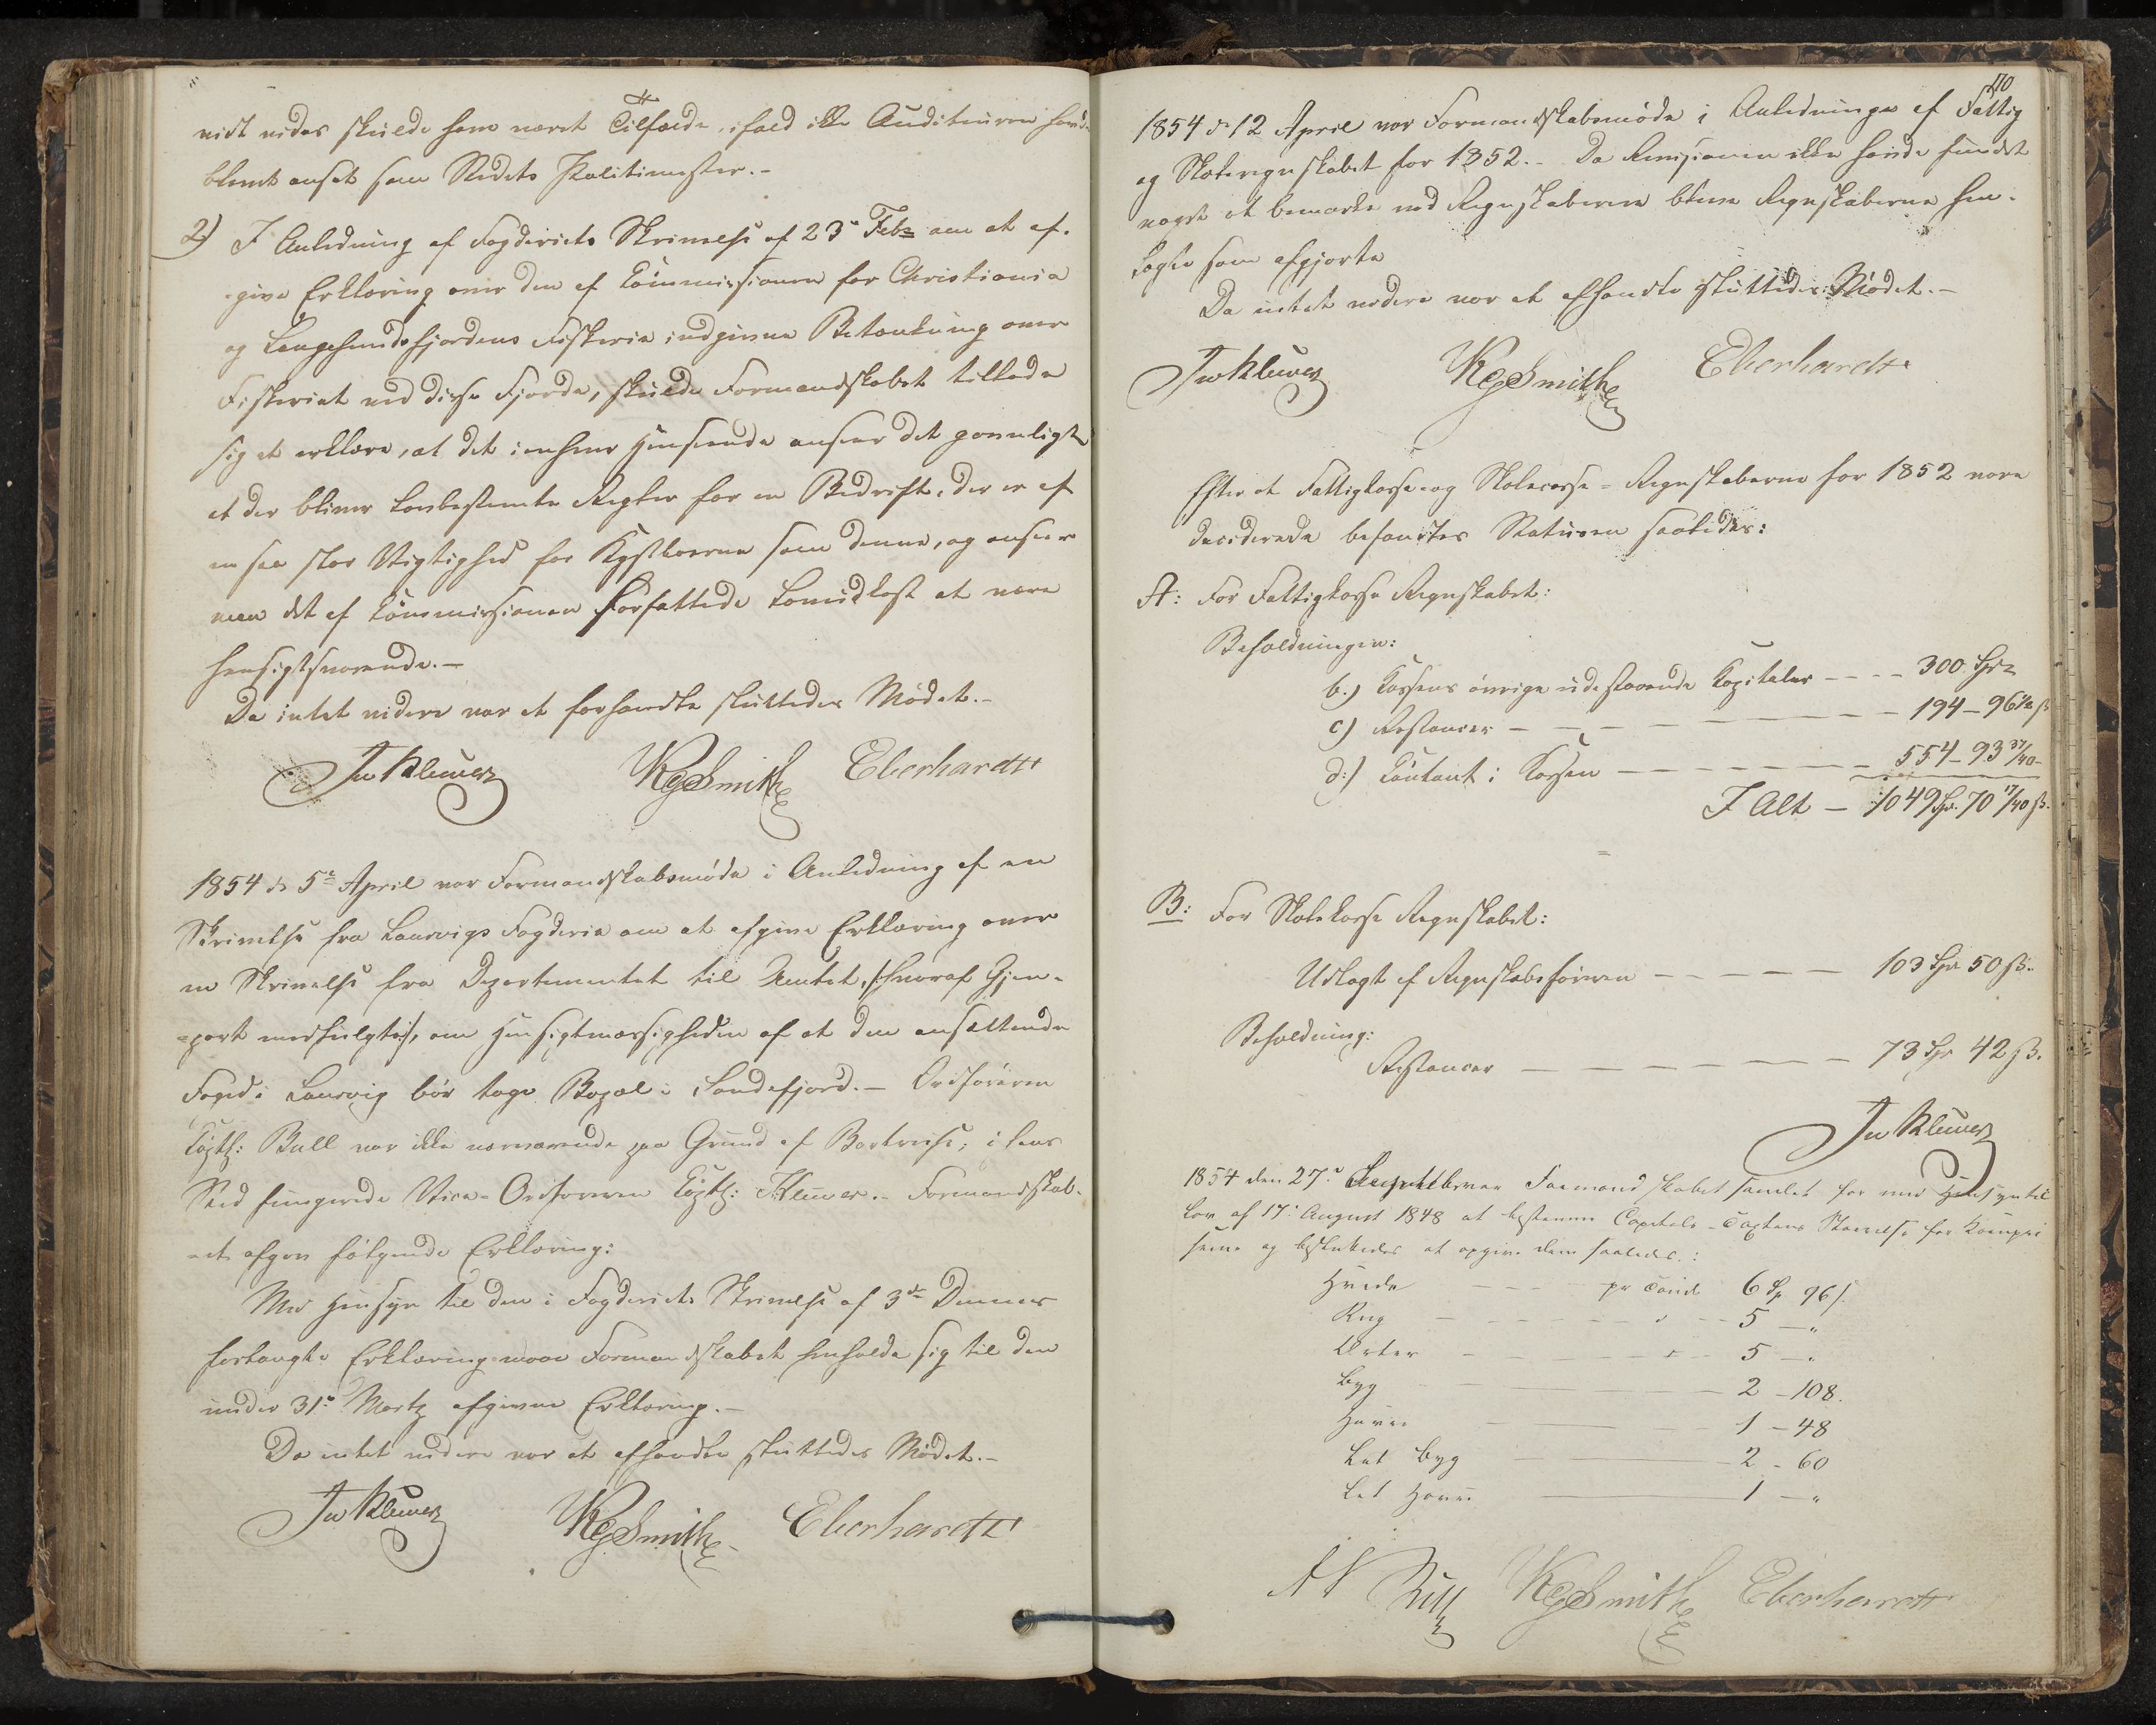 vidt vides skulde have været Tilfælde, ifald ikke Auditeuren havde
blevet anset som Stedets Politimester.-
2) I Anledning af Fogderiets Skrivelse af 23de Febr om at af-
give Erklæring over den af Commissionen for Christiania
og Langesundsfjordens Fiskerie indgivne Betænkning over
Fiskeriet ved disse Fjorde, skulde Formandskabet tillade
sig at erklære, at det i enhver Henseende anseer det gavnligt
at der bliver lovbestemte Regler for en Bedrift, der er af
en saa stor Vigtighed for Kystboerne som denne, og anseer
man det af Commissionen forfattede Lovudkast at være
hensigtsvarende.-
Da intet videre var at forhandle sluttedes Mødet.-
Jw Klüwer KGSmith Eberhardt
1854 d 5te April var Formandskabsmøde i Anledning af en
Skrivelse fra Laurvigs Fogderie om at afgive Erklæring over
en Skrivelse fra Departementet til Amtet, /:hvoraf Gjen-
=part medfulgte:/, om Hensigtmæssigheden af at den ansættende
Foged i Laurvig bør tage Bopæl i Sandefjord.- Ordføreren
Captl: Bull var ikke nærværende paa Grund af Bortreise; i hans
Sted fungerede Vice-Ordføreren Captl: Klüwer.- Formandskab-
-et afgav følgende Erklæring:
Med Hensyn til den i Fogderiets Skrivelse af 3de Dennes
forlangte Erklæring maae Formandskabet henholde sig til den
under 31te Martz afgivne Erklæring.-
Da intet videre var at afhandle sluttedes Mødet.-
Jw Klüwer KGSmith Eberhardt
110
1854 d 12 April var Formandskabsmøde i Anledninge af Fattig
og Skoleregnskabet for 1852.- Da Revisionen ikke havde fundet
noget at bemærke ved Regnskaberne bleve Regnskaberne hen-
lagte som afgjorte
Da intet videre var at afhandle sluttedes Mødet.-
Jw Klüwer KGSmith Eberhardt
Efter at Fattigkasse og Skolecasse-Regnskaberne for 1852 vare
deciderede befandtes Statusen saaledes:
A: For Fattigkasse Regnskabet:
Beholdningen:
b.) Kassens øvrige udestaaende Kapitaler - - - - 300 Spd
c) Restancer - - - - - - 194 - 96 1/2 ß
d:) Contant i Kassen - - - - - 554 - 93 37/40 -
I Alt - 1049 Spd. 70 17/40 ß.
B: For Skolekasse Regnskabet:
Udlagt af Regnskabsføreren - - - - - 103 Spd 50 ß.
Beholdning:
Restancer - - - - - - 73 Spd 42 ß.
Jw Klüwer
1854 den 27de var Formandskabet samlet for med Hensyn til
Lov af 17de August 1848 at bestemme Capitels-Taxtens Størrelse for Kornpri
serne og besluttedes at opgive dem saaledes:
Hvede - - - pr Tønde 6 Sp 96 ß.
Rug - - - - - - " - - 5 - "
Erter - - - - " - 5 - "
Byg - - - 2 - 108.
Havre - - - 1 - 48
Let Byg - - 2 - 60
Let Havre - 1 - "
Bull KGSmith Eberhardt